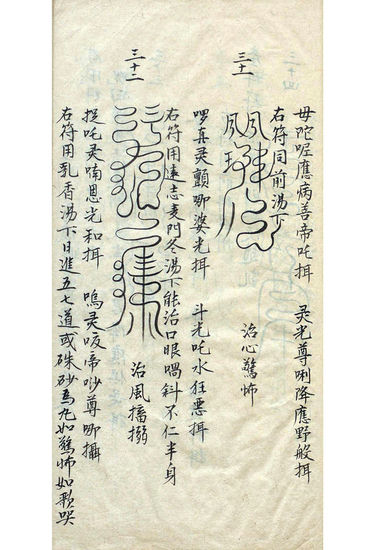 毋陀喔應病善帝吒揖　灵光尊唎降應野般揖
右符同前湯下
三十一
治心驚怖
啰真灵顫唧婆光揖　斗光吒水狂惡揖
右符用遠志麦門冬湯下能治口眼喎斜不仁半身
三十二
治風搐搦
捉吒灵喃恩光和揖　嗚灵㕹帝吵尊唧攝
右符用乳香湯下日進五七道或硃砂為丸如驚怖如歌哭